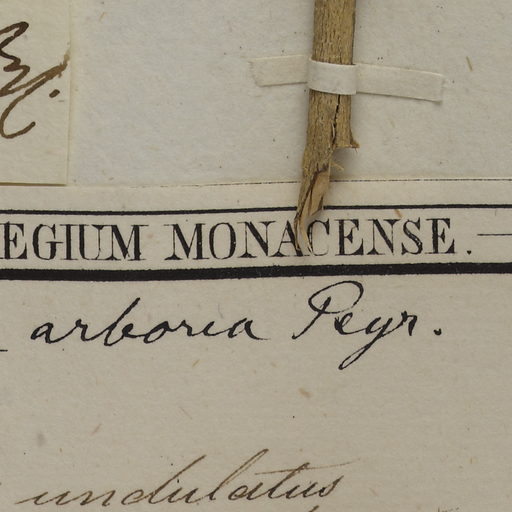 EGIUM MONACENSE.
arborea Peyr.
undulatus